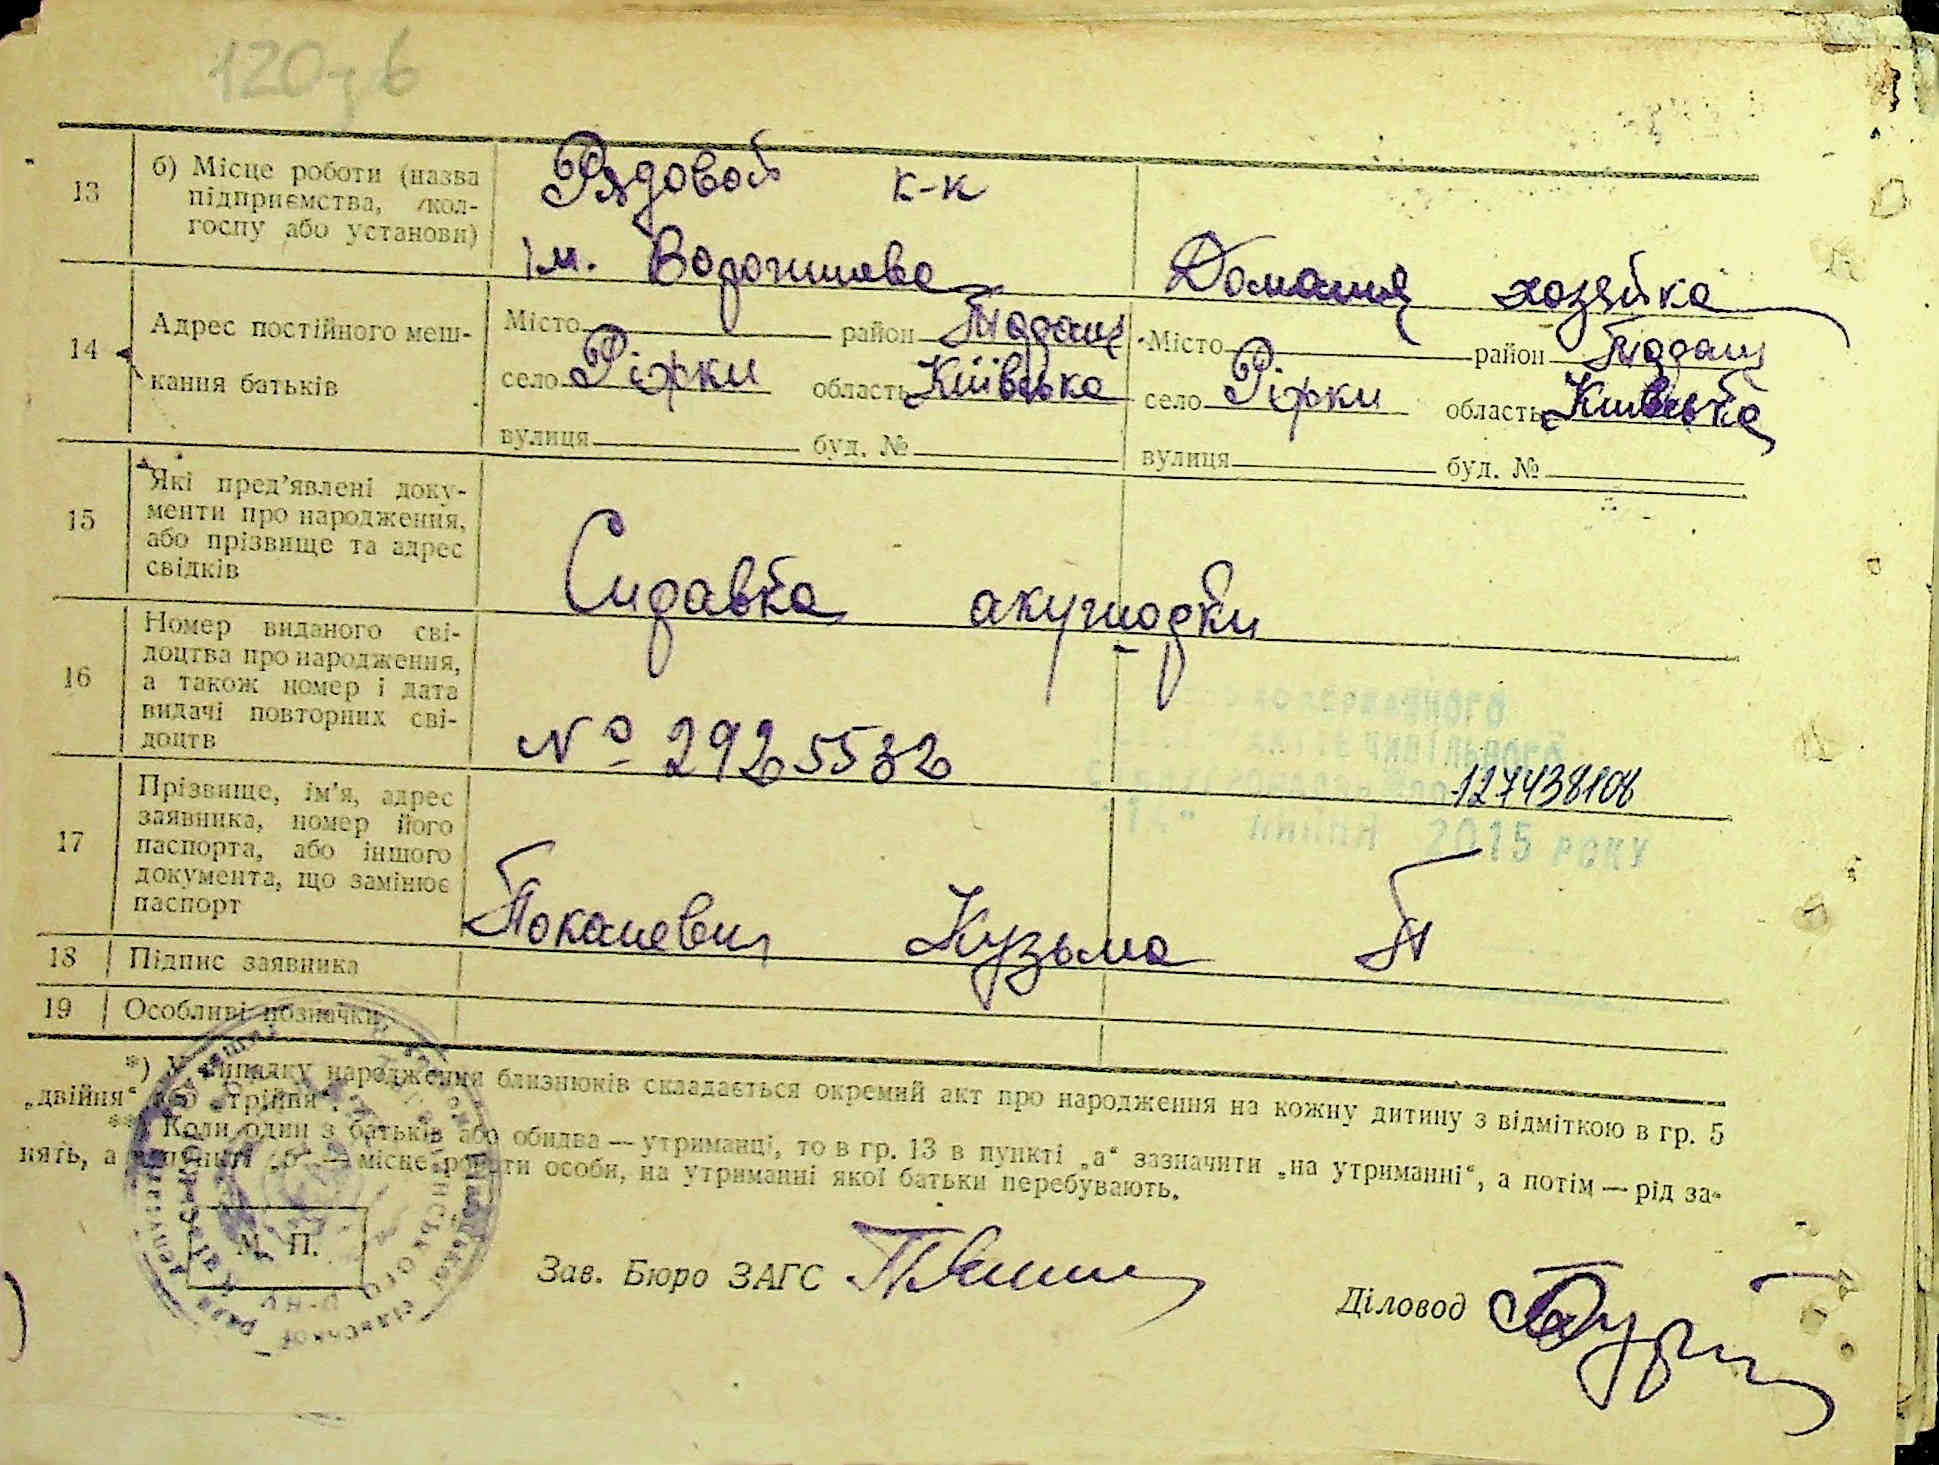 120 зв
13
б) Місце роботи (назва
підприємства, кол-
госпу або установи)
Рядовой к-к
ім. Ворошилова
Домашня хозяйка
14
Адрес постійного меш-
кання батьків
Місто район
село Ріжки область Київська
вулиця буд. №
Місто район
село Ріжки область Київська
вулиця буд. №
15
Які пред’явлені доку-
менти про народження,
або прізвище та адрес
свідків
Справка акушорки
16
Номер виданого сві-
доцтва про народження,
а також номер і дата
видачі повторних сві-
доцтв
№ 2925532
127438108
2015 РОКУ
17
Прізвище, ім’я, адрес
заявника, номер його
паспорта, або іншого
документа, що замінює
паспорт
Кузьма П
18 Підпис заявника
19 Особливі позначки
*) У випадку народження близнюків складається окремий акт про народження на кожну дитину з відміткою в гр. 5
„двійня“ або „трійня“.
**) Коли один з батьків або обидва — утриманці, то в гр. 13 в пункті „а“ зазначити „на утриманні“, а потім — рід за-
нять, а в пункті „б“ — місце роботи особи, на утриманні якої батьки перебувають.
М. П.
Зав. Бюро ЗАГС
Діловод